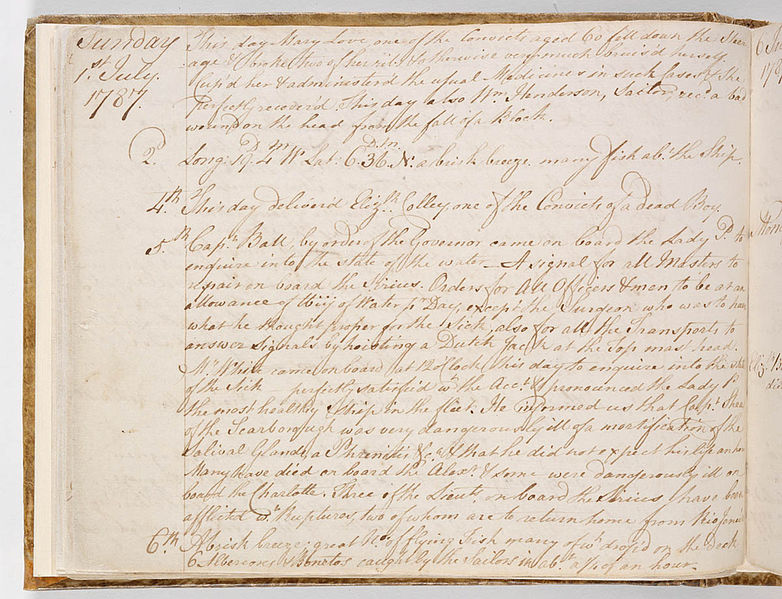 Sunday
1st July.
1787.
This day Mary Love, one of the Convicts aged 60 fell down the Steer
age & broke two of her ribs & otherwise very much bruis'd herself
Cup'd her & administerd the usual Medicines in such cases & She
Perfectly recover'd. This day also Wm. Henderson, Sailor, rec'd a bad
wound on the head from the fall of a Block.
2. Long: 19D. 4m W Lat: 6D. 36m. N. a brisk breeze. many fish abt. the Ship.
4th. This day deliverd Elizth. Colley, one of the Convicts of a dead Boy.
5th. Capn. Ball, by order of the Governor came on board the Lady P. to
enquire into the state of the water — A signal for all Masters to
repair on board the Sirius. Orders for All Officers & men to be at an
allowance of of Water pr. Day, except the Surgeon who was to have
what he thought proper for the Sick, also for all the Transports to
answer Signals by hoisting a Dutch Jack at the Top mast head.
Mr. White came on board at 12 o'Clock this day to enquire into the state
of the Sick — perfectly satisfied wt. the Acct. & pronounced the Lady P.
the most healthy Ship in the fleet. He informed us that Capt.
of the Scarborough was very dangerously ill of a mortification of the
Salival Glands, a Phrenitis, &c. & that he did not expect his life an hour
Many have died on board the Alexr. & some were dangerously ill on
board the Charlotte. Three of the Lieuts. on board the Sirius have been
afflicted wt. Ruptures, two of whom are to return home from Rio Janeir
6th. A brisk breeze; great No. of flying Fish many of wh. drop'd on the deck
6 Albercores & Bonetos caught by the Sailors in abt. a ¼ of an hour.